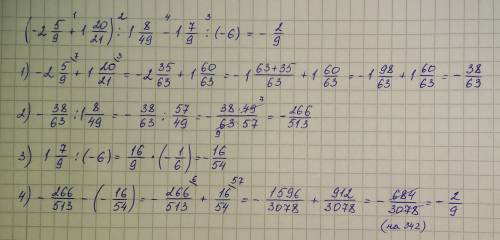 (-2 5/9 + 1 20/21) : 1 8/49 - 1 7/9 : (-6) = - 2/9
1) -2 5/9 + 1 20/21 = -2 35/63 + 1 60/63 = -1 (63+35)/63 + 1 60/63 = -1 98/63 + 1 60/63 = - 38/63
2) - 38/63 : 1 8/49 = - 38/63 : 57/49 = - (38·49)/(63·57) = - 266/513
3) 1 7/9 : (-6) = 16/9 · (- 1/6) = - 16/54
4) - 266/513 - (- 16/54) = - 266/513 + 16/54 = - 1596/3078 + 912/3078 = - 684/3078 = - 2/9
(на 342)